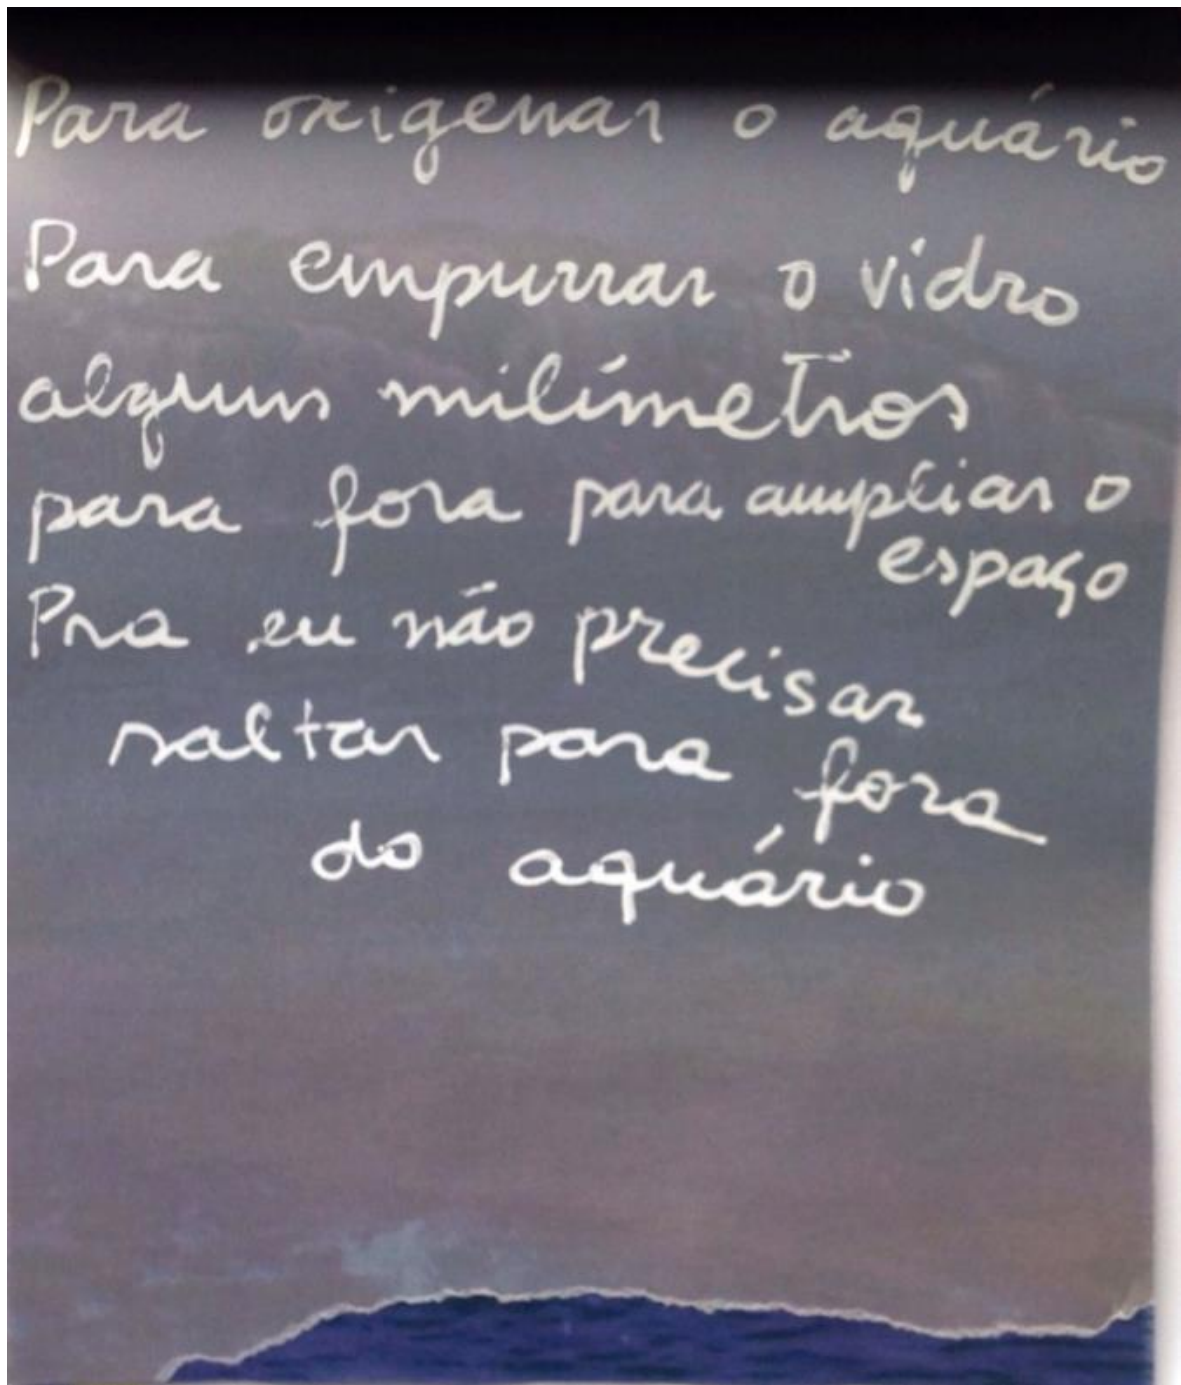 Para oxigenar o aquário
Para empurrar o vidro
alguns milímetros
para fora para ampliar o
espaço
Pra eu não precisar
saltar para fora
do aquário